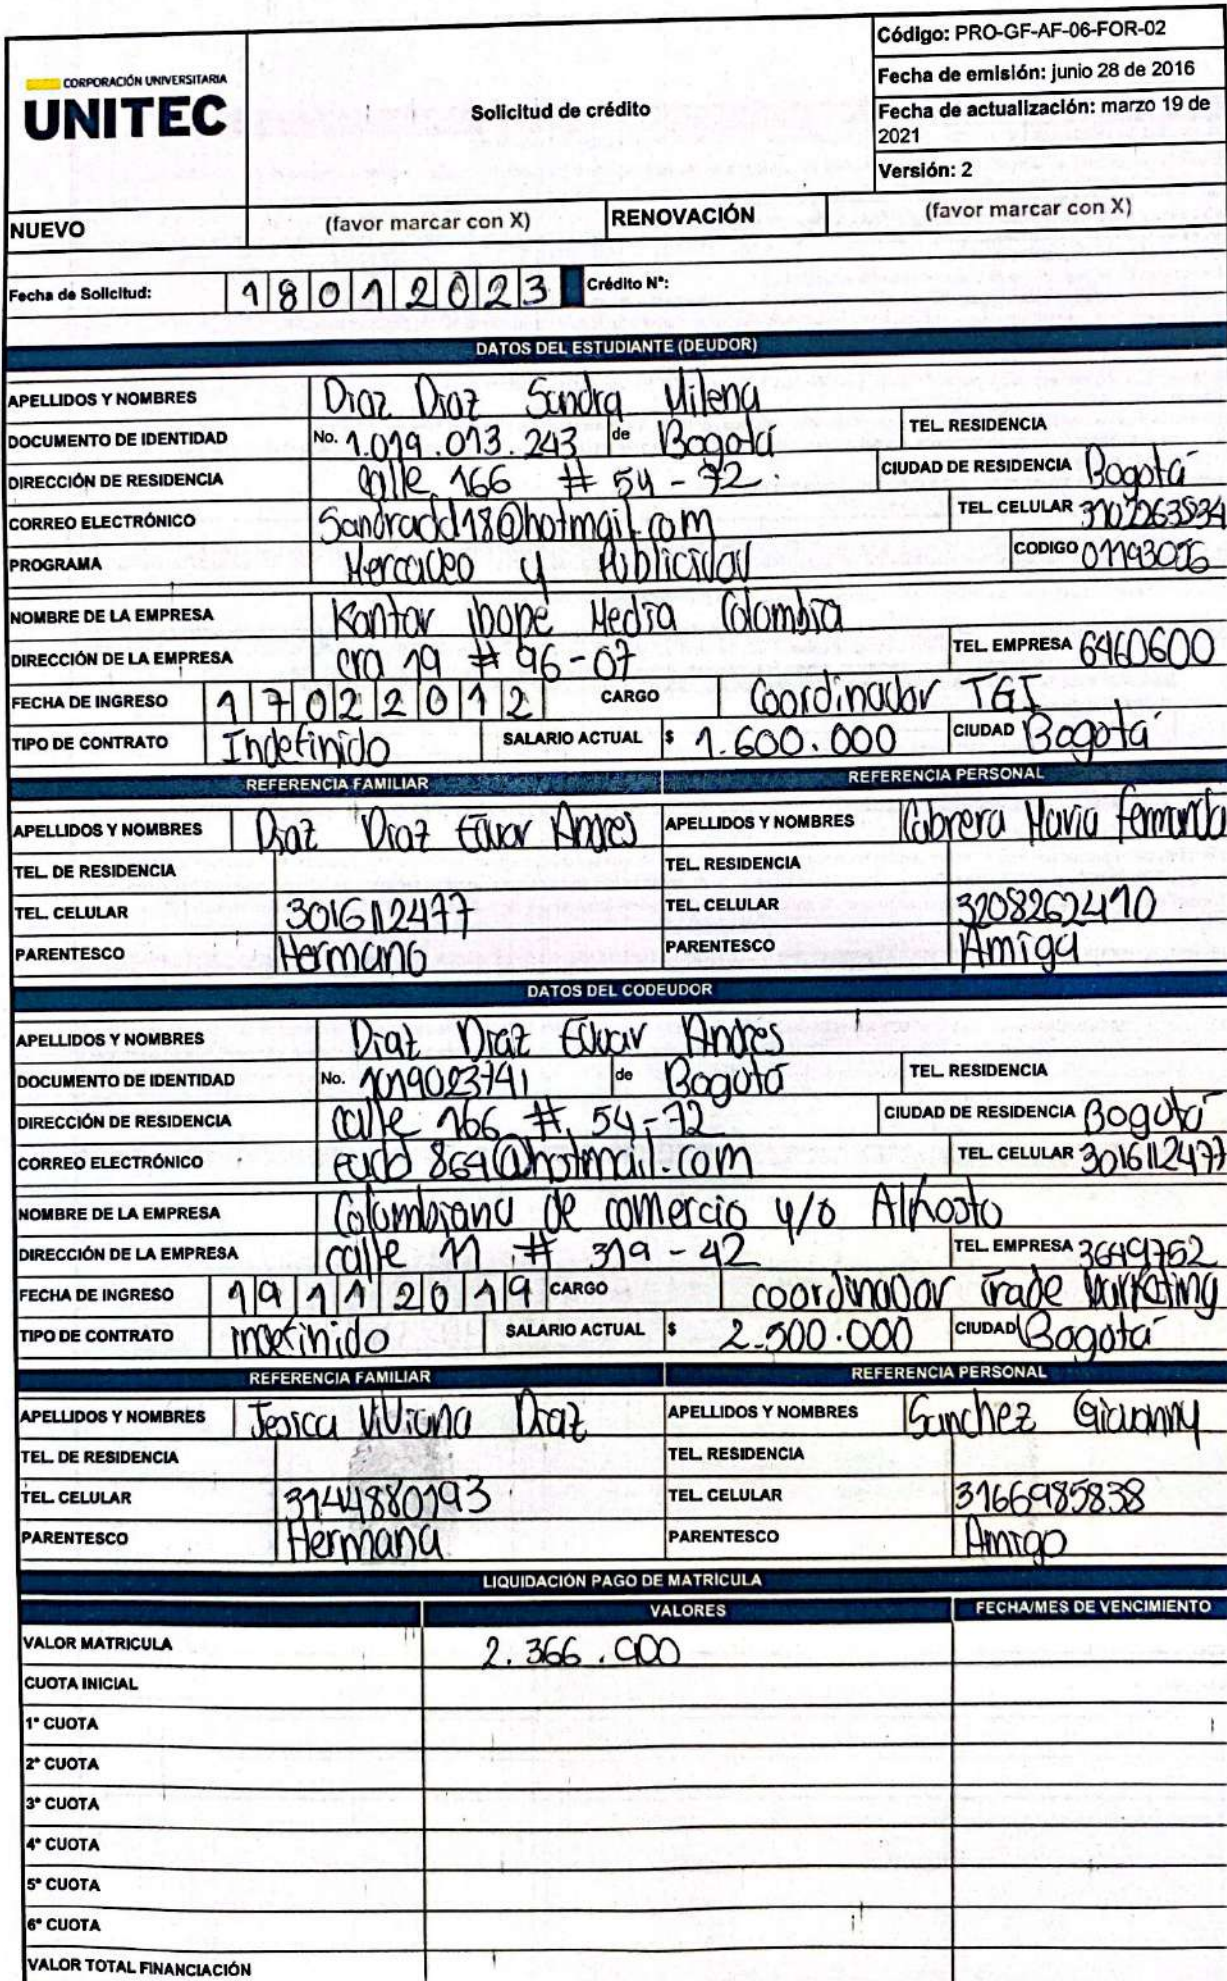 CORPORACIÓN UNIVERSITARIA
UNITEC
Solicitud de crédito
Código: PRO-GF-AF-06-FOR-02
Fecha de emisión: junio 28 de 2016
Fecha de actualización: marzo 19 de
2021
Versión: 2
NUEVO (favor marcar con X) RENOVACIÓN (favor marcar con X)
Fecha de Solicitud: 18012023 Crédito N°:
DATOS DEL ESTUDIANTE (DEUDOR)
APELLIDOS Y NOMBRES Diaz Diaz Sandra Milena
DOCUMENTO DE IDENTIDAD No. 1.019.013.243 de Bogotá TEL. RESIDENCIA
DIRECCIÓN DE RESIDENCIA calle 166 # 54-72 CIUDAD DE RESIDENCIA Bogotá
CORREO ELECTRÓNICO Sandradd18@hotmail.com TEL. CELULAR 3102263534
PROGRAMA Mercadeo y Publicidad CODIGO
NOMBRE DE LA EMPRESA Kantar ibope Media Colombia
DIRECCIÓN DE LA EMPRESA cra 19 # 96-07 TEL. EMPRESA 6460600
FECHA DE INGRESO 17022012 CARGO Coordinador TGI
TIPO DE CONTRATO Indefinido SALARIO ACTUAL $ 1.600.000 CIUDAD Bogotá
REFERENCIA FAMILIAR REFERENCIA PERSONAL
APELLIDOS Y NOMBRES Diaz Diaz Edwar Andres APELLIDOS Y NOMBRES Cabrera Maria Fernanda
TEL. DE RESIDENCIA TEL. RESIDENCIA
TEL. CELULAR 3016112477 TEL. CELULAR 3208262410
PARENTESCO Hermano PARENTESCO Amiga
DATOS DEL CODEUDOR
APELLIDOS Y NOMBRES Diaz Diaz Edwar Andrés
DOCUMENTO DE IDENTIDAD No. 1019023741 de Bogotá TEL. RESIDENCIA
DIRECCIÓN DE RESIDENCIA calle 166 # 54-72 CIUDAD DE RESIDENCIA Bogotá
CORREO ELECTRÓNICO TEL. CELULAR 3016112477
NOMBRE DE LA EMPRESA Colombiana de comercio y/o Alkosto
DIRECCIÓN DE LA EMPRESA calle 11 # 31a - 42 TEL. EMPRESA 3649752
FECHA DE INGRESO 19112019 CARGO coordinador Trade Marketing
TIPO DE CONTRATO indefinido SALARIO ACTUAL $ 2.500.000 CIUDAD Bogotá
REFERENCIA FAMILIAR REFERENCIA PERSONAL
APELLIDOS Y NOMBRES Jesica Viviana Diaz APELLIDOS Y NOMBRES Sanchez Giovanny
TEL. DE RESIDENCIA TEL. RESIDENCIA
TEL. CELULAR 3144880193 TEL. CELULAR 3166985838
PARENTESCO Hermana PARENTESCO Amigo
LIQUIDACIÓN PAGO DE MATRÍCULA
VALORES FECHA/MES DE VENCIMIENTO
VALOR MATRICULA 2.366.900
CUOTA INICIAL
1° CUOTA
2° CUOTA
3° CUOTA
4° CUOTA
5° CUOTA
6° CUOTA
VALOR TOTAL FINANCIACIÓN